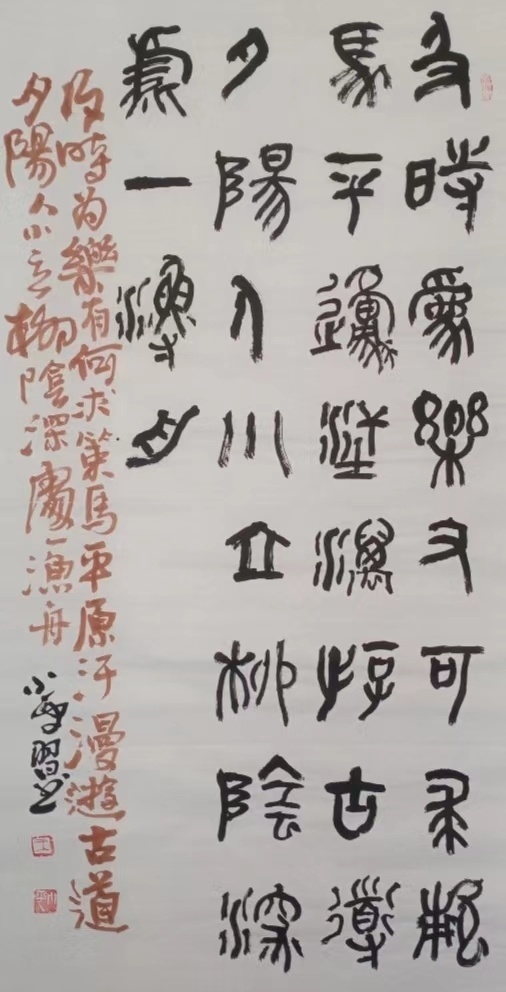 及時為樂又可求策
馬平邍汗漫游古道
夕陽人小立柳陰深
處一漁舟
及時为樂有何求策馬平原汗漫遊古道
夕陽人小立柳陰深處一漁舟